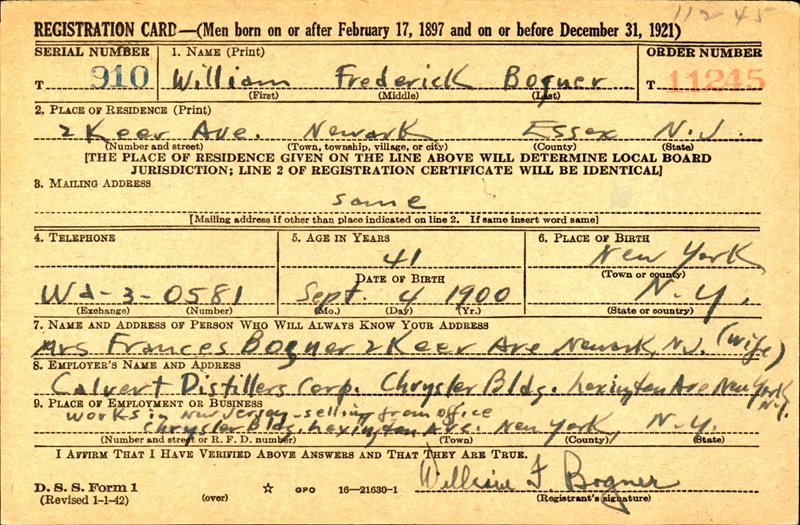 112 45
REGISTRATION CARD—(Men born on or after February 17, 1897 and on or before December 31, 1921)
SERIAL NUMBER 1. NAME (Print) ORDER NUMBER
T 910 William Frederick Bogner T 11245
(First) (Middle) (Last)
2. PLACE OF RESIDENCE (Print)
2 Keer Ave. Newark Essex N.J.
(Number and street) (Town, township, village, or city) (County) (State)
[THE PLACE OF RESIDENCE GIVEN ON THE LINE ABOVE WILL DETERMINE LOCAL BOARD
JURISDICTION; LINE 2 OF REGISTRATION CERTIFICATE WILL BE IDENTICAL]
3. MAILING ADDRESS
same
[Mailing address if other than place indicated on line 2. If same insert word same]
4. TELEPHONE 5. AGE IN YEARS 6. PLACE OF BIRTH
41 New York
DATE OF BIRTH (Town or county)
Wa-3-0581 Sept. 4 1900 N.Y.
(Exchange) (Number) (Mo.) (Day) (Yr.) (State or country)
7. NAME AND ADDRESS OF PERSON WHO WILL ALWAYS KNOW YOUR ADDRESS
Mrs Frances Bogner 2 Keer Ave Newark, N.J. (wife)
8. EMPLOYER'S NAME AND ADDRESS
Calvert Distillers Corp. Chrysler Bldg. Lexington Ave New York N.Y.
9. PLACE OF EMPLOYMENT OR BUSINESS
works in New Jersey-selling from office
Chrysler Bldg. Lexington Ave. New York, N.Y.
(Number and street or R. F. D. number) (Town) (County) (State)
I AFFIRM THAT I HAVE VERIFIED ABOVE ANSWERS AND THAT THEY ARE TRUE.
William F. Bogner
D. S. S. Form 1
(Revised 1-1-42) (over) ☆ GPO 16—21630-1 (Registrant's signature)